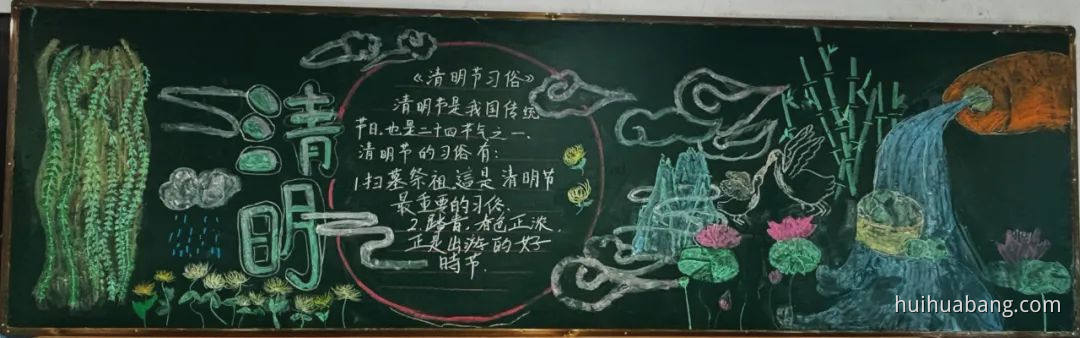 清明
《清明节习俗》
清明节是我国传统
节日,也是二十四节气之一.
清明节的习俗有:
1.扫墓祭祖,這是清明节
最重要的习俗.
2.踏青,春色正浓,
正是出游的好
時节.
huihuabang.com